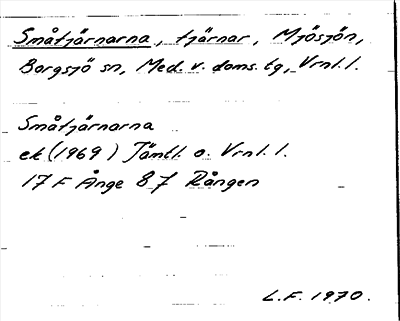 Småtjärnarna, tjärnar, Mjösjön,
Borgsjö sn, Med. v. doms. tg, Vrnl. l.
Småtjärnarna
ek (1969) Jämtl. o. Vrnl. l.
17 F Ånge 8 7 Rången
L.F. 1970.